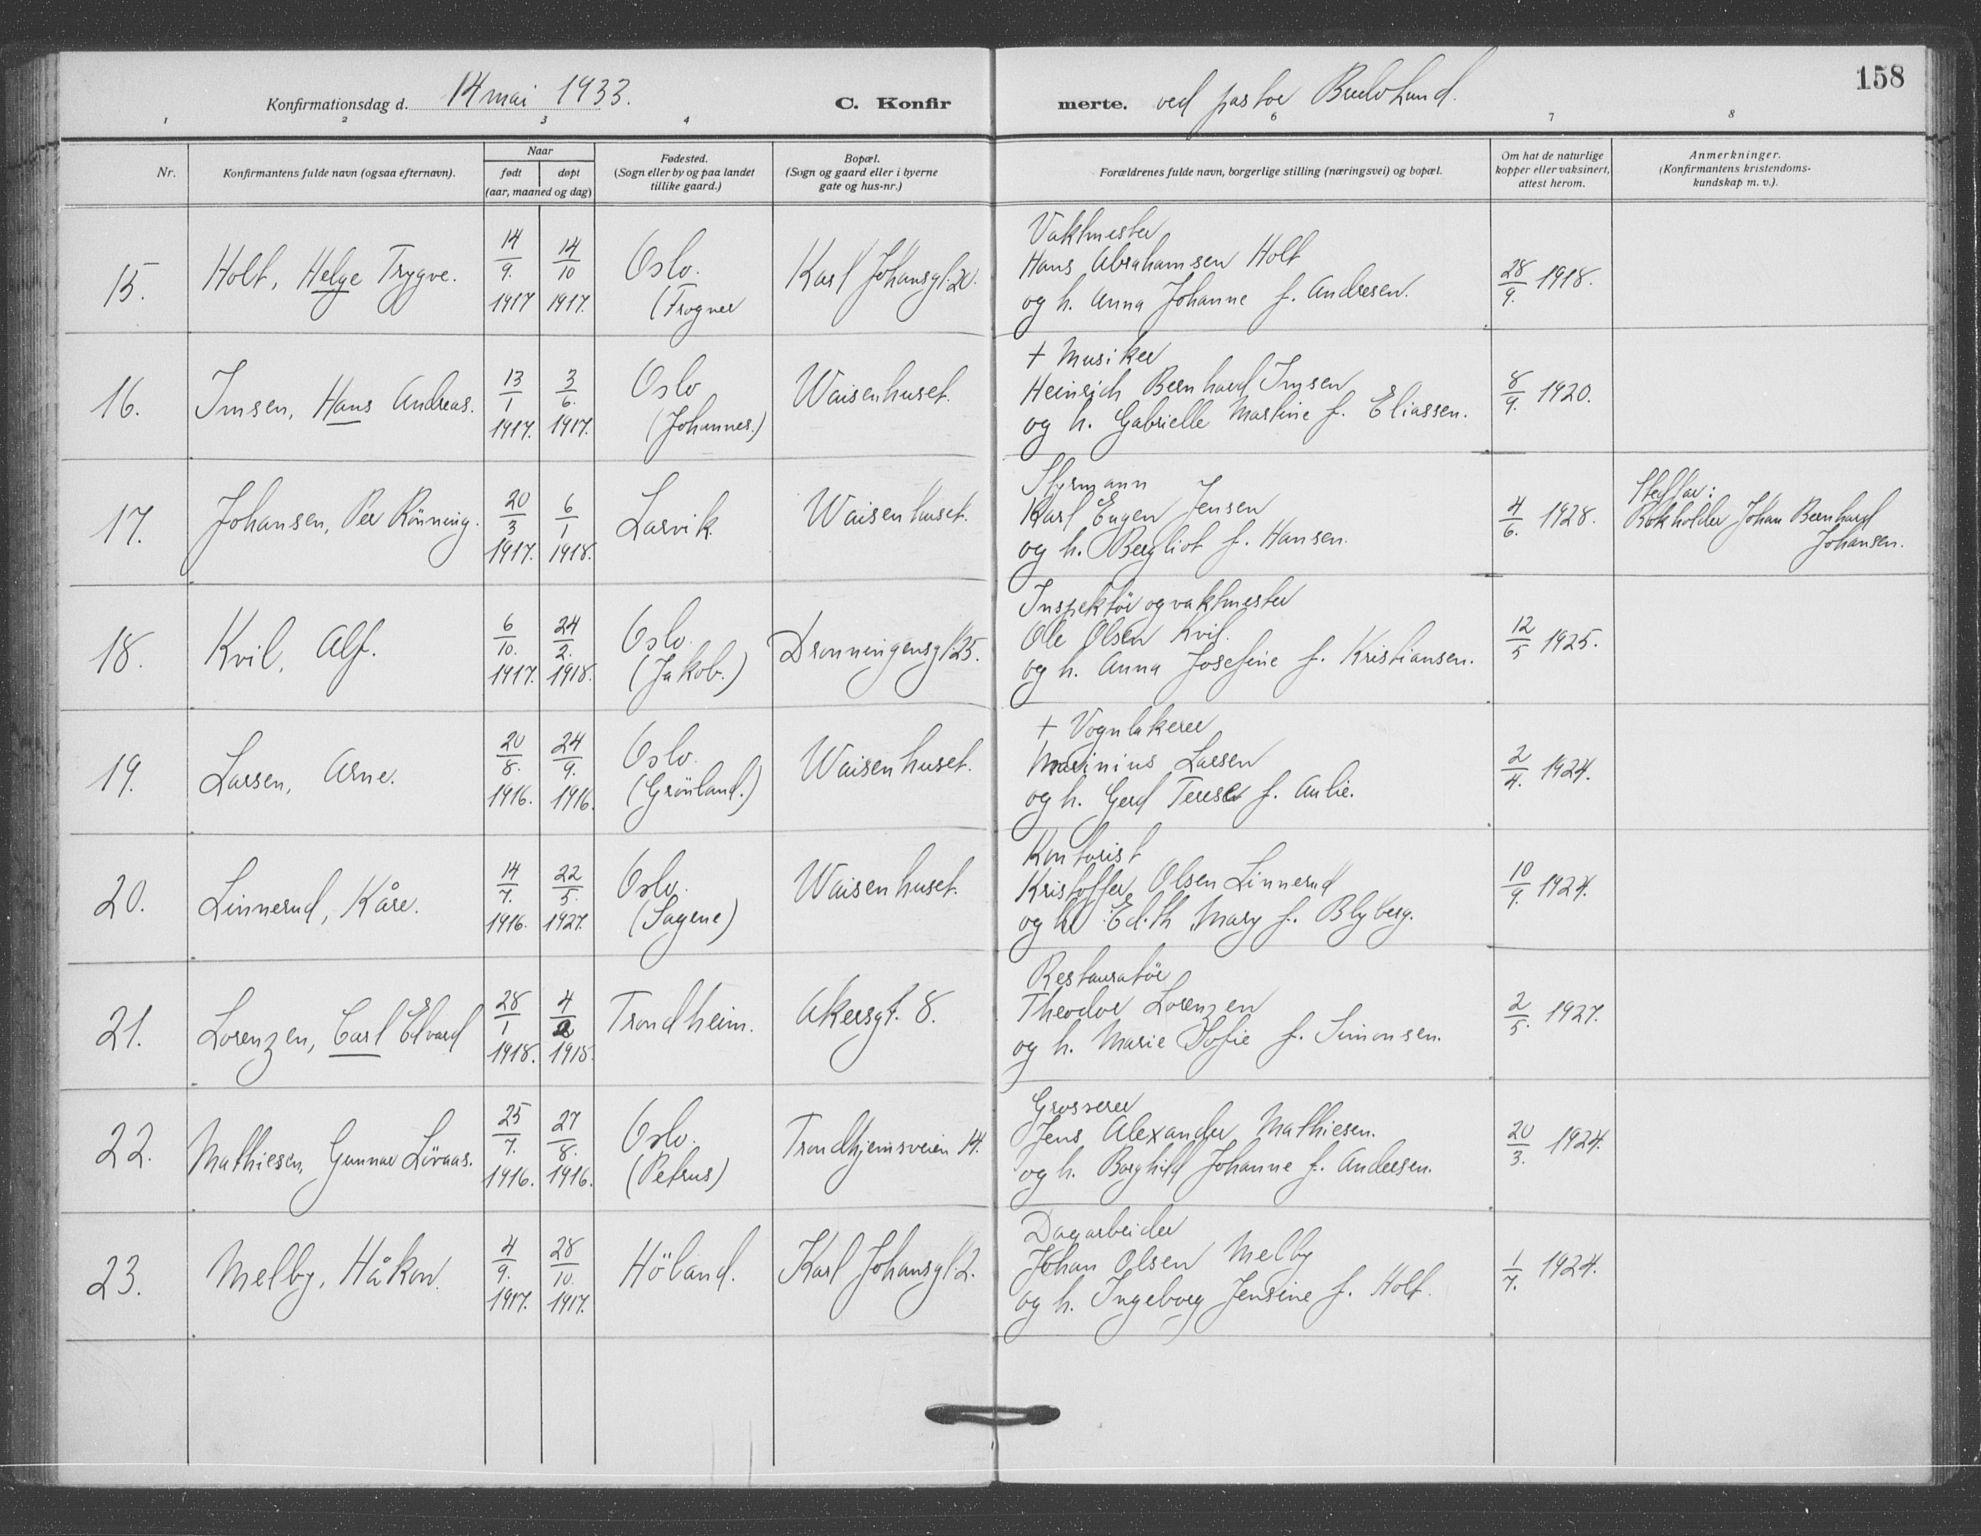 158
Konfirmationsdag d. 14 mai 1933. C. Konfir merte. ved pastor
1 2 3 4 6 7 8
Nr.
Konfirmantens fulde navn (ogsaa efternavn).
Naar
født døpt
(aar, maaned og dag)
Fødested.
(Sogn eller by og paa landet
tillike gaard.)
Bopæl.
(Sogn og gaard eller i byerne
gate og hus-nr.)
Forældrenes fulde navn, borgerlige stilling (næringsvei) og bopæl.
Om hat de naturlige
kopper eller vaksinert,
attest herom.
Anmerkninger.
(Konfirmantens kristendoms-
kundskap m. v.).
15.
Holt, Helge Trygve.
14/9. 1917
14/10 1917.
Oslo.
(Frogner
Karl Johansgt. 20.
Vaktmester
Hans Abrahamsen Holt
og h. Anna Johanne f. Andresen.
28/9. 1918.
16.
Imsen, Hans Andreas.
13/1 1917.
3/6. 1917.
Oslo
(Johannes.)
Waisenhuset.
+ Musiker
Heinrich Bernhard Imsen
og h. Gabrielle Martine f. Eliassen.
8/9. 1920.
17.
Johansen, Per Rönning.
20/3 1917.
6/1 1918.
Larvik
Waisenhuset.
Styrmann
Karl Eugen Jensen
og h. Bergliot f. Hansen.
4/6. 1928.
Stedfar:
Bokholder Johan Bernhard
Johansen.
18.
Kvil, Alf.
6/10. 1917.
24/2. 1918.
Oslo.
(Jakob.)
Dronningensgt. 25.
Inspektör og vaktmester
Ole Olsen Kvil.
og h. Anna Josefine f. Kristiansen.
12/5 1925.
19.
Larsen, Arne.
20/8. 1916.
24/9. 1916.
Oslo.
(Grönland.)
Waisenhuset.
+ Vognlakerer
Marinius Larsen
og h. Gerd Terese f. Aulie.
2/4. 1924.
20.
Linnerud, Kåre.
14/7. 1916.
22/5. 1927.
Oslo.
(Sagene)
Waisenhuset.
Kontorist
Kristoffer Olsen Linnerud
og h. Edith Mary f. Blyberg.
10/9. 1924.
21.
Lorenzen, Carl Edvard
28/1 1918.
4/2 1918.
Trondheim.
Akersgt. 8.
Restauratör
Theodor Lorenzen
og h. Marie Sofie f. Simonsen.
2/5. 1927.
22.
Mathiesen, Gunnar Löraas.
25/7. 1916.
27/8. 1916.
Oslo.
(Petrus)
Trondhjemsveien 14.
Grosserer
Jens Alexander Mathiesen.
og h. Borghild Johanne f. Andersen.
20/3. 1924.
23.
Melby, Håkon.
4/9. 1917.
28/10. 1917.
Höland.
Karl Johansgt. 2.
Dagarbeider
Johan Olsen Melby
og h. Ingeborg Jensine f. Holt.
1/7. 1924.